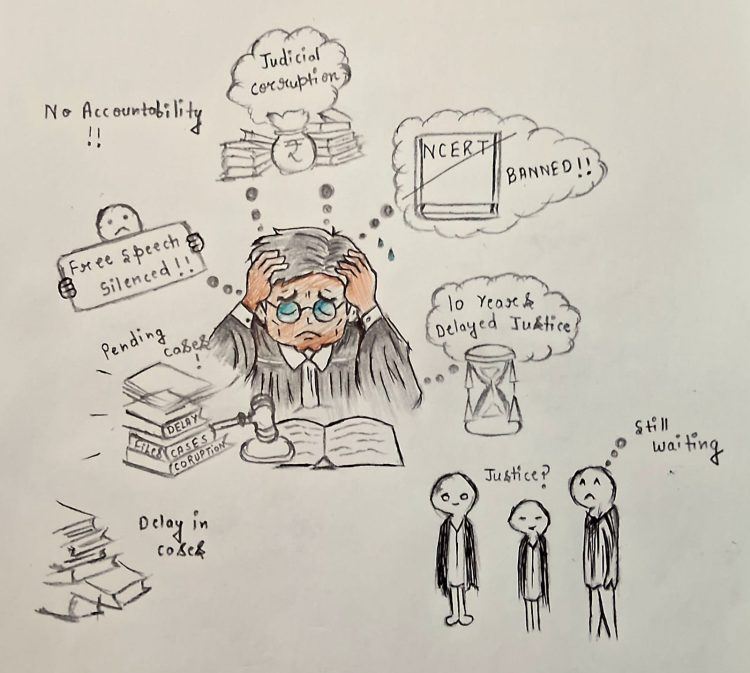 Judicial
corruption
₹
No Accountability
!!
NCERT
BANNED!!
Free Speech
Silenced!!
10 Years
Delayed Justice
Pending
cases
!
DELAY
FILES CASES
CORUPTION
Still
waiting
Justice?
Delay in
cases